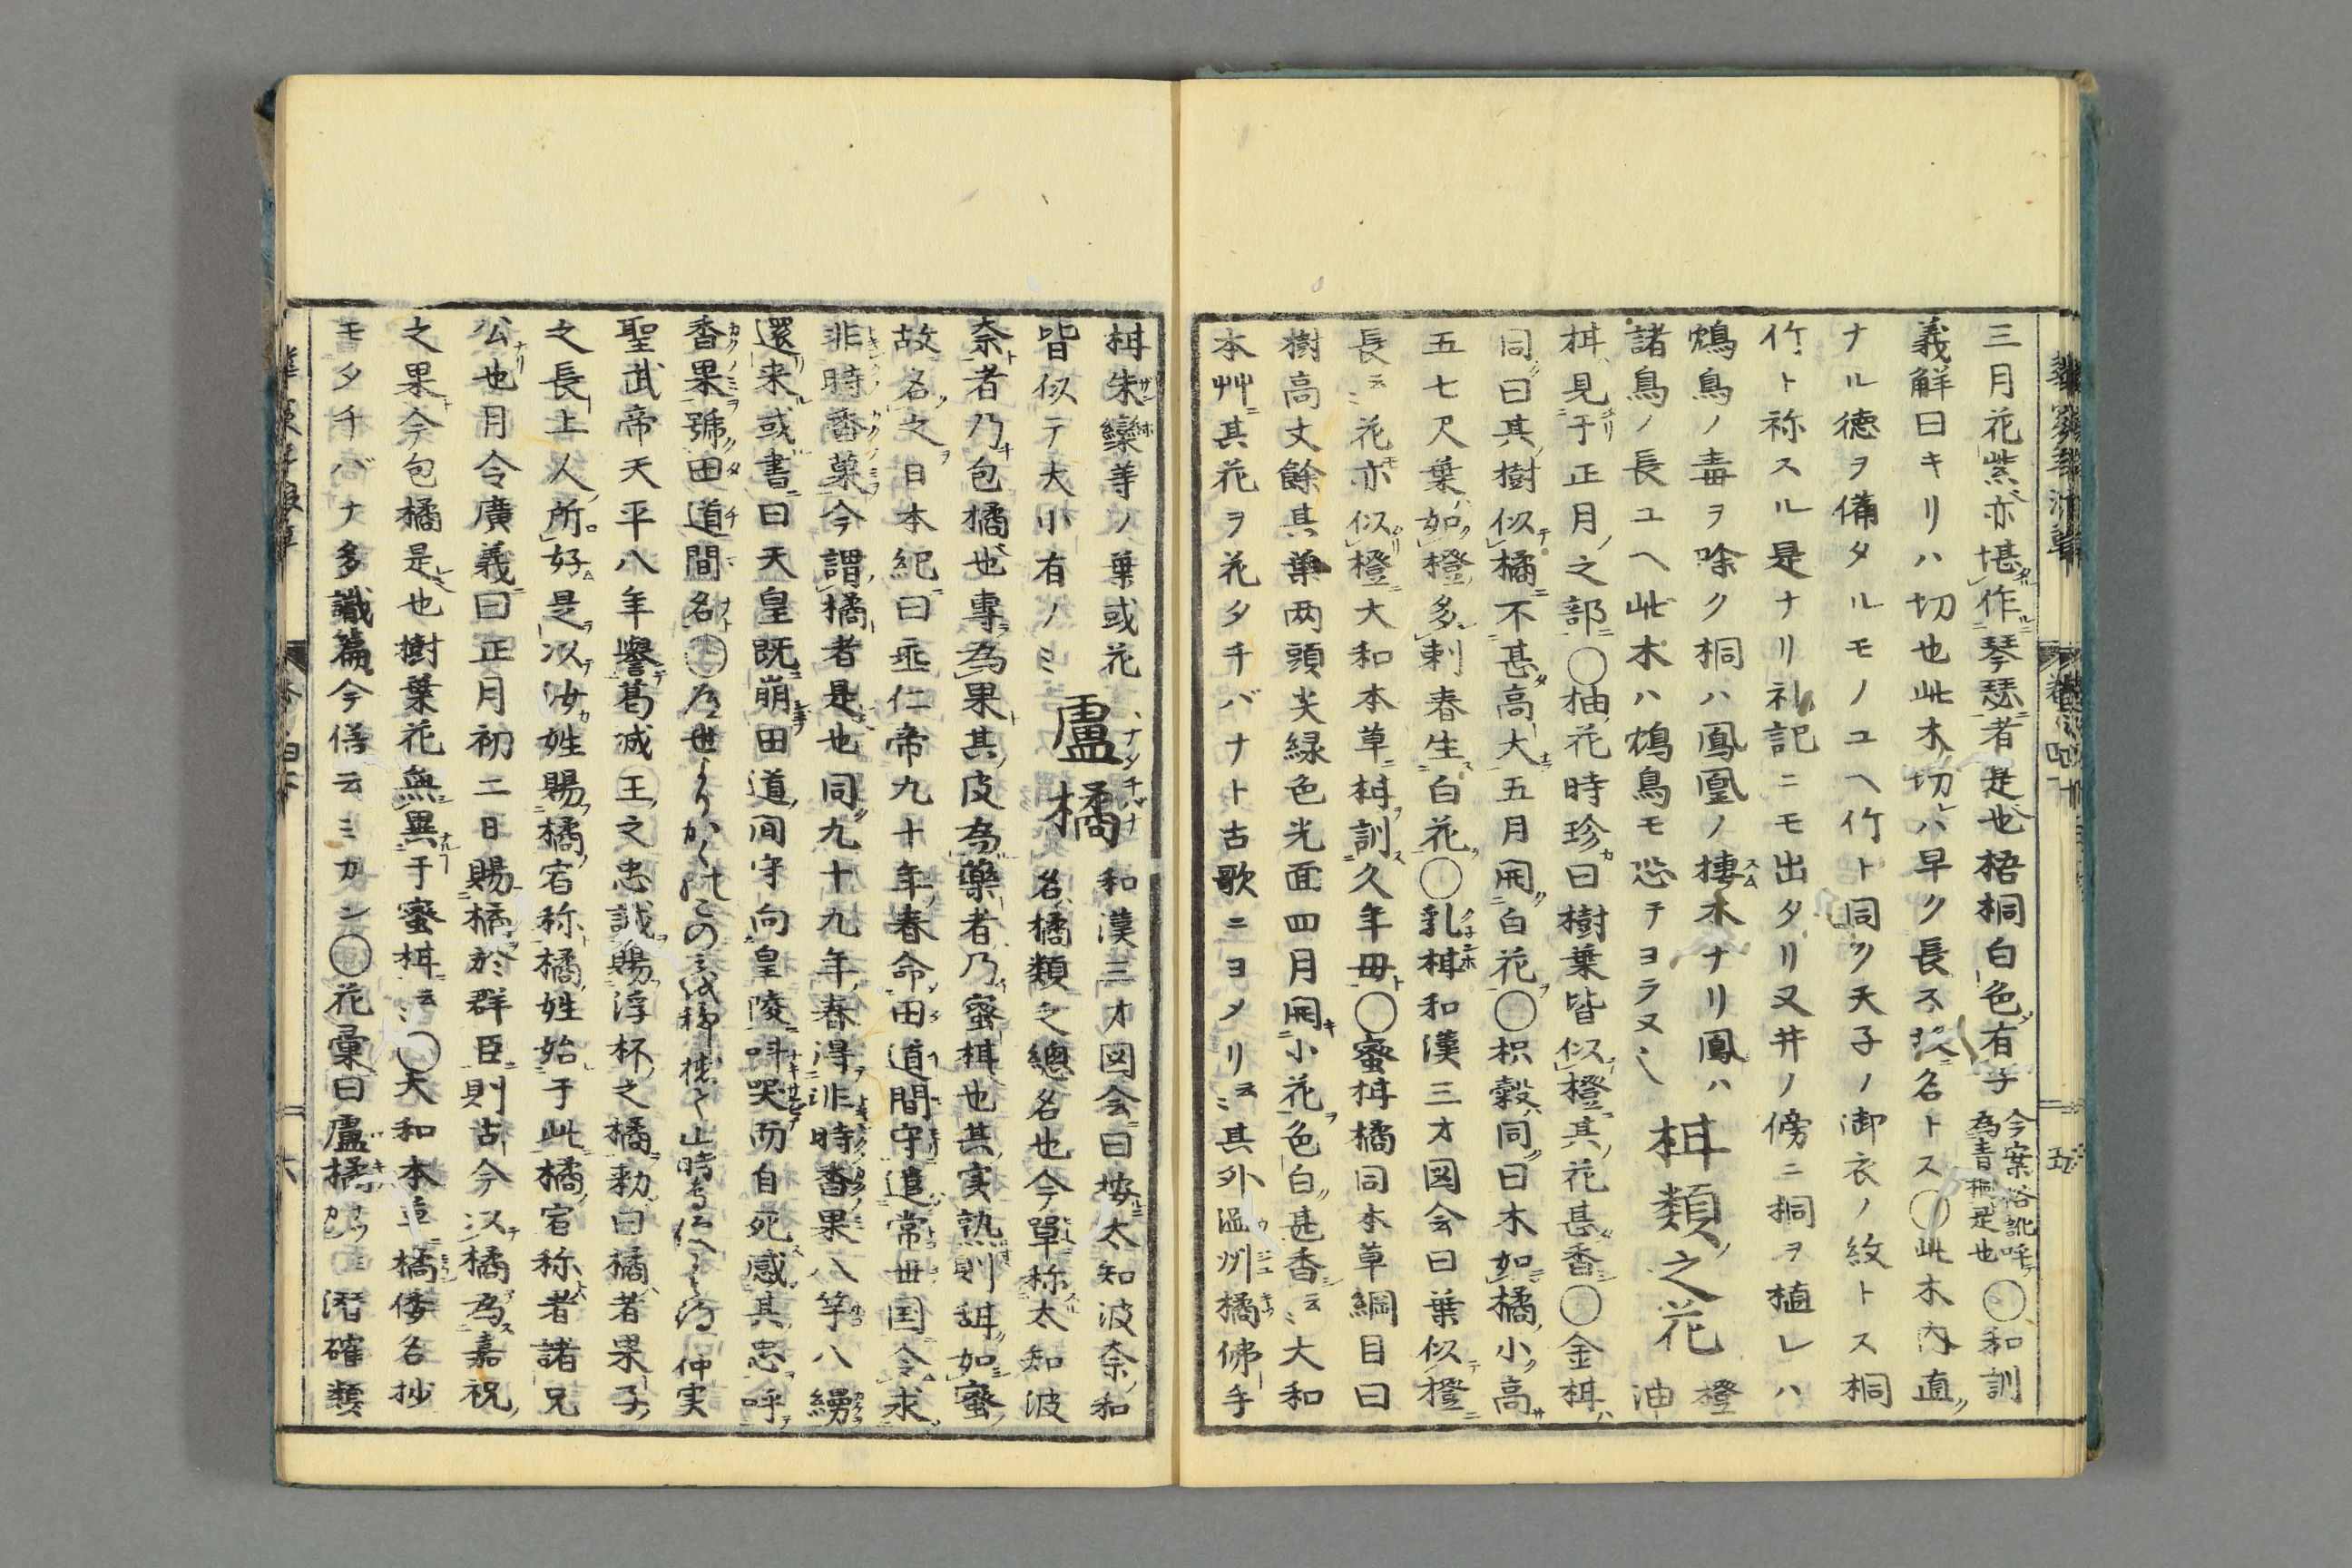 三月花紫亦堪作琴瑟者是也梧桐白色有子今案俗訛呼為青桐是也〇和訓
義解曰キリハ切也此木切レハ早ク長ス故ニ名トス〇此木内直
ナル徳ヲ備タルモノユヘ竹ト同ク天子ノ御衣ノ紋トス桐
竹ト称スル是ナリ礼記ニモ出タリ又井ノ傍ニ桐ヲ植レハ
鴆鳥ノ毒ヲ除ク桐ハ鳳凰ノ棲木ナリ鳳ハ
諸鳥ノ長ユヘ此木ハ鴆鳥モ恐テヨラヌ〻
柑類之花
橙
油
柑見于正月之部〇柚花時珍曰樹葉皆似橙其花甚香〇金柑
同曰其樹似橘不甚高大五月開白花〇枳穀同曰木如橘小高
五七尺葉如橙多刺春生白花〇乳柑和漢三才図会曰葉似橙
長云〻花亦似橙大和本草柑訓久年毋〇蜜柑橘同本草綱目曰
樹高丈餘其葉両頭尖緑色光面四月開小花色白甚香云〻大和
本艸其花ヲ花タチバナト古歌ニヨメリ云〻其外温州橘佛手
柑朱欒等ノ葉或花
皆似テ大小有ノミ
盧橘
ハナタチバナ
和漢三才図会曰按太知波奈和
名橘類之總名也今單称太知波
奈者乃包橘也專為果其皮為藥者乃蜜柑也其実熟則甜如蜜
故名之日本紀曰垂仁帝九十年春命田道間守遣常世国令求
非時香菓今謂橘者是也同九十九年春得非時香果八竿八縵
還来或書曰天皇既崩田道间守向皇陵呌哭而自死感其忠呼
香果號田道間名
仲実
聖武帝天平八年譽葛城王之忠誠賜浮杯之橘勅曰橘者果子
之長上人所好是以汝姓賜橘宿称橘姓始于此橘宿称者諸兄
公也月令廣義曰正月初二日賜橘於群臣則古今以橘為嘉祝
之果今包橘是也樹葉花無異于蜜柑云〻〇大和本草橘倭名抄
モタチバナ多識篇今俗云ミカン〇花彙曰盧橘 潜確類